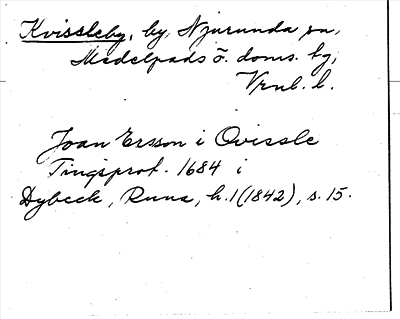 Kvissleby, by, Njurunda sn,
Medelpads ö. doms. tg,
Vrnl. l.
Joan Ersson i Qvissle
Tingsprot. 1684 i
Dybeck, Runa, h. 1 (1842), s. 15.